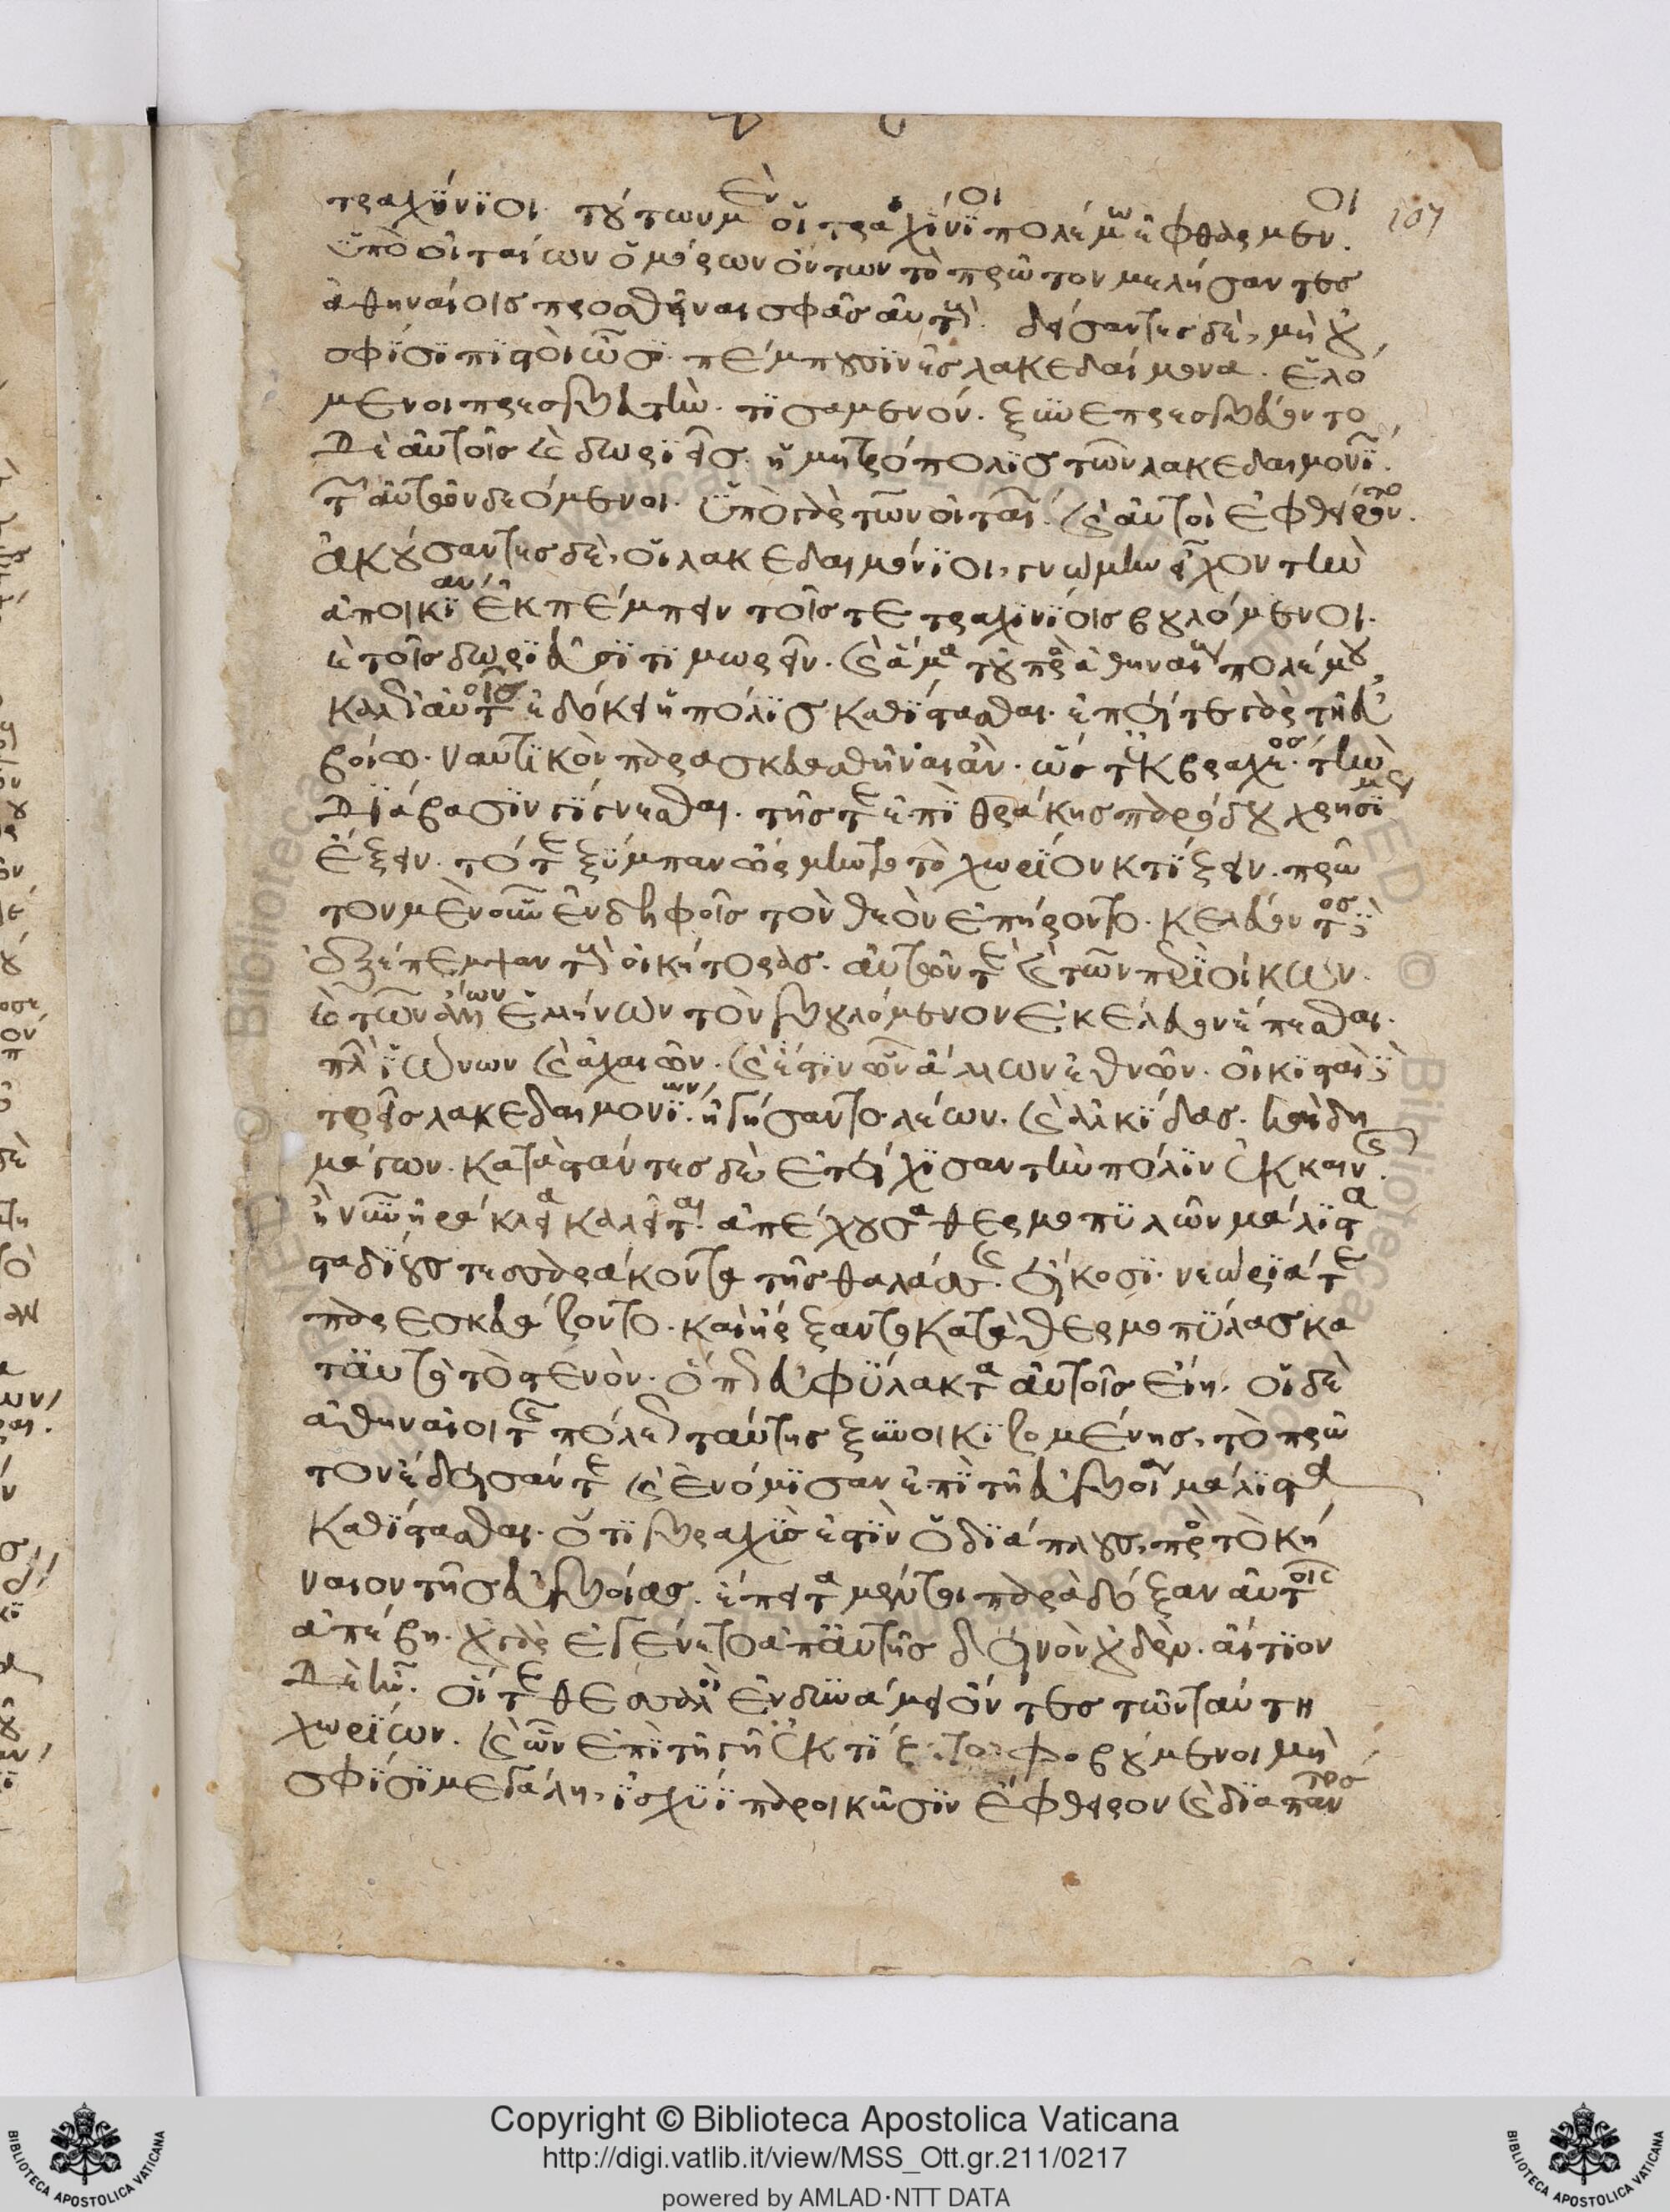 τραχίνιοι. τούτων μὲν οἱ τραχίνιοι πολέμω ἐφθαρμένοι 107
ὑπὸ οἰταίων ὁμόρων ὄντων τὸ πρῶτον μελήσαντες
ἀθηναίοις προσθεῖναι σφᾶς αὐτούς. δείσαντες δὲ, μὴ οὐ
σφίσι πιστοὶ ὦσι. πέμπουσιν ἐς λακεδαίμονα. ἑλό
μενοι πρεσβευτὴν. τισαμενόν. ξυνεπρεσβεύοντο
δὲ αὐτοῖς καὶ δωριεῖς. ἡ μητρόπολις τῶν λακεδαιμονίων
τῶν αὐτῶν δεόμενοι. ὑπὸ γὰρ τῶν οἰταίων καὶ αὐτοὶ ἐφθείροντο.
ἀκούσαντες δὲ, οἱ λακεδαιμόνιοι, γνώμην εἶχον τὴν
ἀποικίαν ἐκπέμπειν τοῖς τε τραχινίοις βουλόμενοι.
καὶ τοῖς δωριεῦσι τιμωρεῖν. καὶ ἅμα τοῦ πρὸς ἀθηναίους πολέμου
καλῶς αὐτοῖς ἐδόκει ἡ πόλις καθίστασθαι. ἐπί τε γὰρ τῆ εὐ
βοία. ναυτικὸν παρασκευασθῆναι ἂν. ὥστ' ἐκ βραχέος τὴν
διάβασιν γίγνεσθαι. τῆς τε ἐπὶ θράκης παρόδου χρησίμως
ἕξειν. τό τε ξύμπαν ὥρμηντο τὸ χωρίον κτίζειν. πρῶ
τον μὲν οὖν ἐν δελφοῖς τὸν θεὸν ἐπήροντο. κελεύοντος δὲ
ἐξέπεμψαν τοὺς οἰκήτορας. αὐτῶν τε καὶ τῶν περιοίκων.
καὶ τῶν ἄλλων ἑλλήνων τὸν βουλόμενον ἐκέλευον ἕπεσθαι.
πλὴν ἰώνων καὶ ἀχαιῶν. καὶ ἔστιν ὧν ἄλλων ἐθνῶν. οἰκισταὶ δὲ
τρεῖς λακεδαιμονίων. ἡγήσαντο. λέων. καὶ ἀλκίδας. καὶ δη
μάγων. καταστάντες δὲ ἐτείχισαν τὴν πόλιν ἐκ καινῆς.
ἣ νῦν ἡράκλεια καλεῖται. ἀπέχουσα θερμοπυλῶν μάλιστα
σταδίους τεσσαράκοντα τῆς θαλάσσης. εἴκοσι. νεώριά τε
παρεσκευάζοντο. καὶ ἦρξαντο κατὰ θερμοπύλας κα
τ' αὐτὸ τὸ στενὸν. ὅπως εὐφύλακτα αὐτοῖς εἴη. οἱ δὲ
ἀθηναῖοι τῆς πόλεως ταύτης ξυνοικιζομένης, τὸ πρῶ
τον ἔδεισάν τε καὶ ἐνόμισαν ἐπὶ τῆ εὐβοία μάλιστα
καθίστασθαι. ὅτι βραχύς ἐστιν ὁ διάπλους, πρὸς τὸ κή
ναιον τῆς εὐβοίας. ἔπειτα μέντοι παρὰ δόξαν αὐτοῖς
ἀπέβη. οὐ γὰρ ἐγένετο ἀπ' αὐτῆς δεινὸν οὐδέν. αἴτιον
δὲ ἦν. οἵ τε θεσσαλοὶ ἐν δυνάμει ὄντες τῶν ταύτη
χωρίων. καὶ ὧν ἐπὶ τῆ γῆ ἐκτίζετο. φοβούμενοι μὴ
σφίσι μεγάλη, ἰσχύϊ παροικῶσιν ἔφθειρον καὶ διαπαντὸς
Copyright © Biblioteca Apostolica Vaticana
http://digi.vatlib.it/view/MSS_Ott.gr.211/0217
powered by AMLAD·NTT DATA
BIBLIOTECA APOSTOLICA VATICANA
BIBLIOTECA APOSTOLICA VATICANA